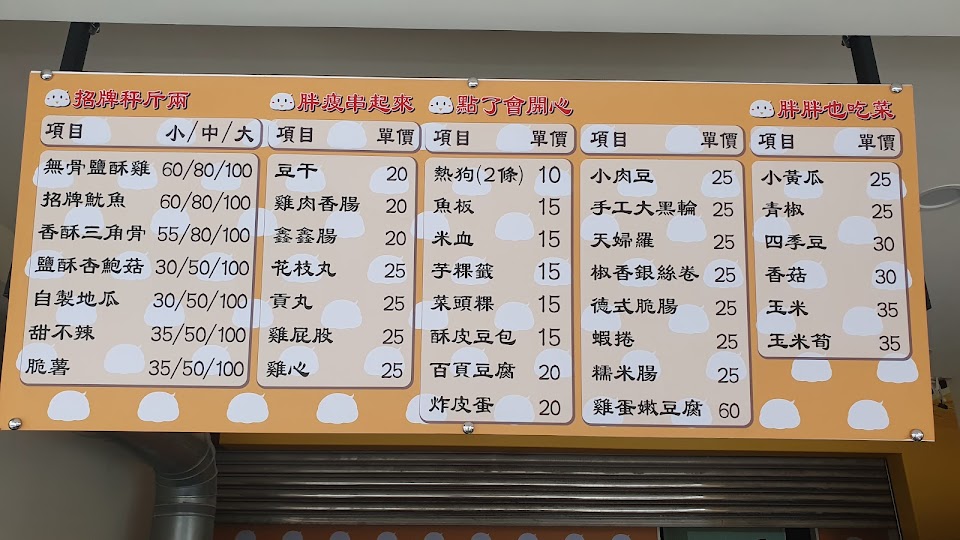 招牌秤斤兩
項目 小/中/大
無骨鹽酥雞 60/80/100
招牌魷魚 60/80/100
香酥三角骨 55/80/100
鹽酥杏鮑菇 30/50/100
自製地瓜 30/50/100
甜不辣 35/50/100
脆薯 35/50/100
胖瘦串起來
項目 單價
豆干 20
雞肉香腸 20
鑫鑫腸 20
花枝丸 25
貢丸 25
雞屁股 25
雞心 25
點了會開心
項目 單價
熱狗(2條) 10
魚板 15
米血 15
芋粿籤 15
菜頭粿 15
酥皮豆包 15
百頁豆腐 20
炸皮蛋 20
項目 單價
小肉豆 25
手工大黑輪 25
天婦羅 25
椒香銀絲卷 25
德式脆腸 25
蝦捲 25
糯米腸 25
雞蛋嫩豆腐 60
胖胖也吃菜
項目 單價
小黃瓜 25
青椒 25
四季豆 30
香菇 30
玉米 35
玉米筍 35